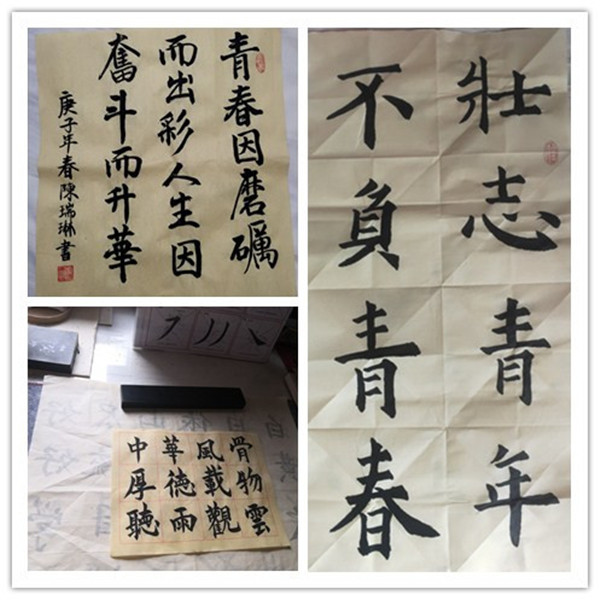 青春因磨礪
而出彩人生因
奮斗而升華
庚子年春陳瑞琳書
壯志青年
不負青春
骨物雲
風載觀
華德雨
中厚聽